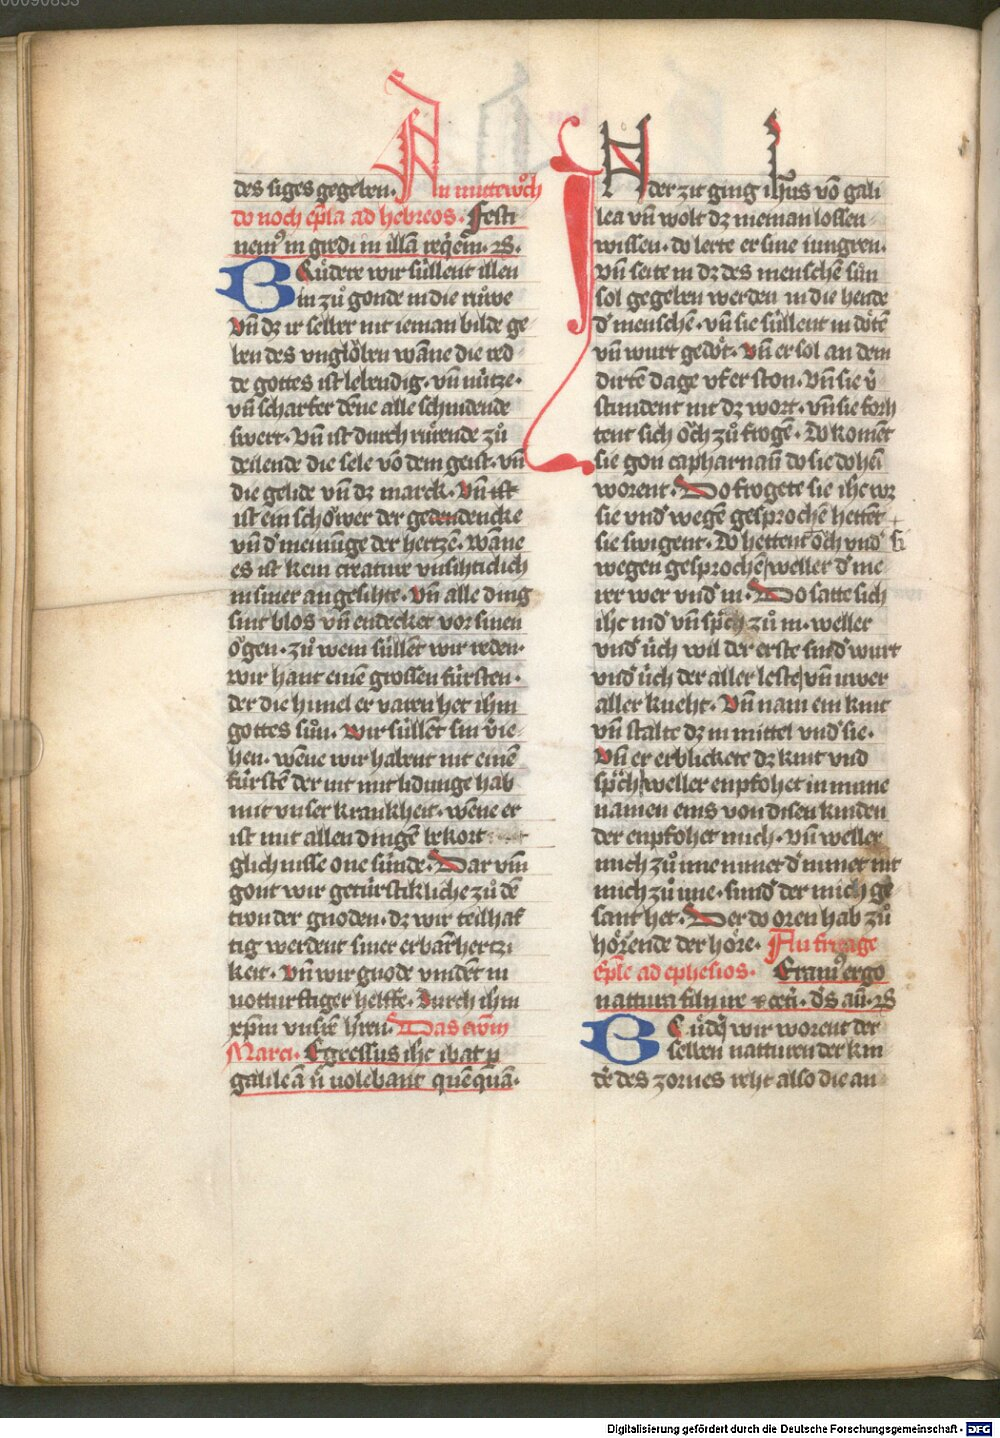 des siges gegeben. An mittewoch
do noch epla ad hebreos. Festi
nem9 in gredi in illā req̄em. B.
Brůdere wir süllent illen
in zů gonde in die růwe
vn̄ dz ir selber nit ieman bilde ge
ben des vnglöben wāne die red
de gottes ist lebendig. vn̄ nütze.
vn̄ scharfer dēne alle schnidende
swert. Vn̄ ist durch rürende zů
deilende die sele vō dem geist. vn̄
die gelide vn̄ dz marck. Vn̄ ist
ist ein schöwer der gedendencke
vn̄ d' meinūge der hertzē. Wāne
es ist kein creature vnsihticlich
in siner angesihte. Vn̄ alle ding
sint blos vn̄ endecket vor sinen
ögen. zů wem süllēt wir reden.
wir hant einē grossen fürsten.
der die himel er varen het ihm
gottes sůn. Wir süllēt sin v'ie
hen. wēne wir habent nit einē
fürstē der nit mitlidunge hab
mit vnser krankheit. wēne er
ist mit allen dingē bekort
glichnisse one sünde. Dar vm̄
gont wir getürstikliche zů dē
tron der gnoden. dz wir teilhaf
tig werdent siner erbarhertzi
keit. Vn̄ wir gnode vindēt in
notturftiger helffe. Durch ihm
xpm vnsn̄ h'ren. Das ewm̄
Marci. Egressus ihc ibat p
galileā n̄ volebant quēq̄ua.
An der zit ging ihus vō gali
lea vn̄ wolt dz nieman lossen
wissen. do lerte er sine iungren.
Vn̄ seite in dz des menschē sun
sol gegeben werden in die hende
d' menschē. vn̄ sie süllent in dötē
vn̄ wurt gedöt. Vn̄ er sol an dem
dirten dage vf er ston. Vn̄ sie v'
stundent nit dz wort. vn̄ sie forh
tent sich öch zů frogē. Do komēt
sie gon capharnaū do sie do hei
worent. Do frogete sie ihc wz
sie vnd' wegē gesprochē hettēt
sie swigent. Do hettent öch vnd'
wegen gesprochē weller d' me
rer wer vnd' in. Do satte sich
ihc nid' vn̄ sp̄ch zů in. weller
vnd' üch wil der erste sind' wurt
vnd' üch der aller leste vn̄ uwer
aller kneht. Vn̄ nam ein kint
vn̄ stalte dz in mittel vnd' sie.
Vn̄ er erblickete dz kint vnd
sp̄ch weller enpfohet in mime
namen eins von disen kinden
der enpfohet mich. Vn̄ weller
mich zů ime nimet d' nimet nit
mich zů ime. sund' der mich ge
sant het. Der do oren hab zů
hörende der höre. An fritage
Eple ad ephesios. Eram9 ergo
nattura filij ire ⁊ ceti. d's aū. B
Brůd' wir worent der
selben natturen der kin
de des zornes reht also die an